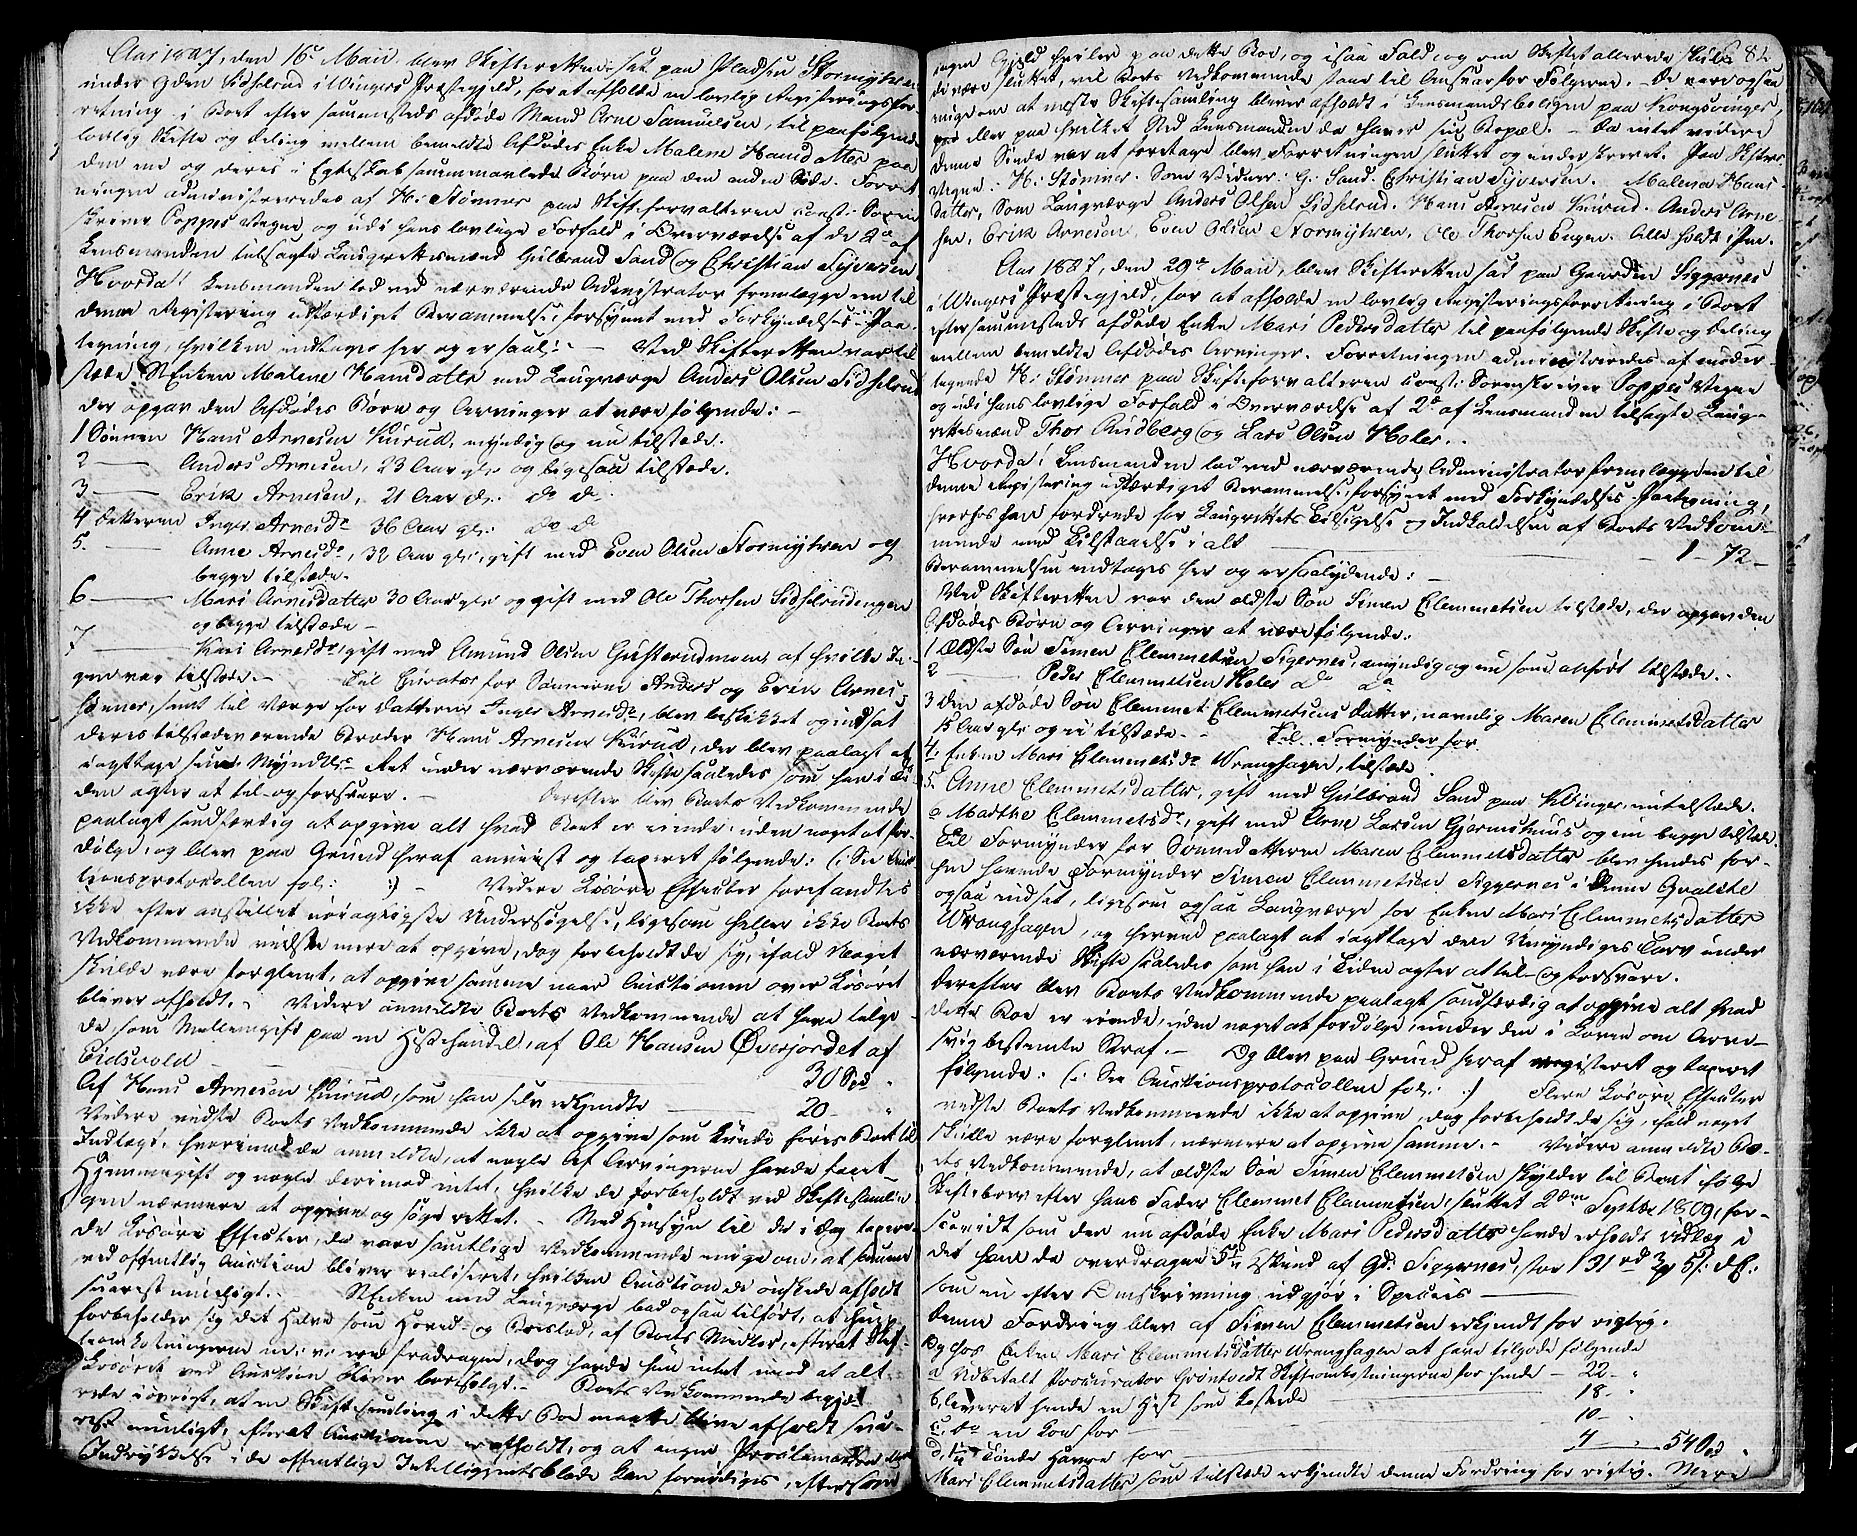 Aar 1827, den 16de Maii blev Skifteretten sat paa Pladsen Stormyhren
under Gden Sidselrud i Wingers Præstegjeld, for at afholde en lovlig Registeringsfor
retning i Boet efter sammesteds afdøde Mand Arne Samuelsen, til paafølgende
lovlig Skifte og Deling mellem bemeldte Afdødes Enke Malene Hansdatter paa
den ene og deres i Egteskab sammenavlede Børn paa den anden Side. Forret
ningen administreredes af H: Stønner paa Skifteforvalteren const: Soren
skriver Poppes Vegne og udi hans lovlige Forfald i Overværelse af de 2de af
Lensmanden tilsagte Laugrettesmænd Gulbrand Sand og Christian Syversen
Hvorda! Lensmanden lod ved nærværende Administrator fremlægge en til
denne Registering udfærdiget Berammelse forsynet med Forkyndelses Paa-
tegning, hvilken indtages her og er saal: - Ved Skifteretten var til
stæde Enken Malene Hansdatter med Laugværge Anders Olsen Sidselrud
der opgav den Afdødes Børn og Arvinger at være følgende: -
1 Sønnen Hans Arnesen Kurud, myndig og nu tilstæde.
2 — Anders Arnesen, 23 Aar gl: og ligesaa tilstæde.
3 — Erik Arnesen, 21 Aar gl. do do
4 Datteren Inger Arnesdr 36 Aar gl: do do
5. — Anne Arnesdr, 32 Aar gl:, gift med Even Olsen Stormyhren og
begge tilstæde.
6 — Mari Arnesdatter 30 Aar gl: og gift med Ole Thorsen Sidselrudengen
og begge tilstæde -
7 — Kari Arnesdr, gift med Amund Olsen Gusterudmoen, af hvilke In-
gen var tilstæde. - Til Curator for Sønnerne Anders og Erik Arnes-
sønner, samt til Værge for Datteren Inger Arnesdr, blev beskikket og indsat
deres tilstædeværende Broder Hans Arnesen Kurud, der blev paalagt at
iagttage sine Myndtl: Ret under nærværende Skifte saaledes som han i Ti
den agter at til- og forsvare. - Derefter blev Boets Vedkommende
paalagt sandfærdig at opgive alt hvad Boet er eiende, uden noget at for-
dølge, og blev paa Grund heraf anviist og taxeret følgende: (: See Auc
tionsprotocollen fol: :) - Videre Løsøre Effecter forefandtes
ikke efter anstillet nøiagtigste Undersøgelse, ligesom heller ikke Boets
Vedkommende vidste mere at opgive, dog forbeholdt de sig, ifald Noget
skulde være forglemt, at opgive samme naar Auctionen over Løsøret
bliver afholdt. - Videre anmeldte Boets Vedkommende at have tilgo-
de, som Mellemgift paa en Hestehandel, af Ole Hansen Øverjordet af
Eidsvold — 30 Spd "
Af Hans Arnesen Kurud, som han selv erkjendte — 20 - "
Videre vidste Boets Vedkommende ikke at opgive som kunde føres Boet til
Indtægt, hvorimod de anmeldte, at nogle af Arvingerne havde faaet
Hjemmegift og nogle derimod intet, hvilke de forbeholdt ved Skiftesamlin
gen nærmere at opgive og søge rettet. - Med Hensyn til de i Dag taxere-
de Løsøre Effecter, da vare samtlige Vedkommende enige om, at samme
ved offentlig Auction bliver realiseret, hvilken Auction de ønskede afholdt
snarest mueligt. - Enken med Laugværge bad ogsaa tilført, at hun
forbeholder sig det Halve som Hoved- og Boeslod, af Boets Midler, efterat Skif-
teomkostningerne m: v: ere fradragen, dog havde hun intet imod at alt
Løsøret ved Auction bliver bortsolgt. - Boets Vedkommende begjæ-
rede iøvrigt, at en Skiftesamling i dette Boe maatte blive afholdt sna-
rest mueligt, efterat Auctionen er afholdt, og at ingen Proclama
Indrykkelse i de offentlige Intelligentsblade kan fornødiges, eftersom
ingen Gjeld hviler paa dette Boe, og isaa Fald, og om Skiftet allerede skulde 82
de være sluttet, vil Boets Vedkommende staae til Ansvar for Følgerne. De vare ogsaa
enige om at næste Skiftesamling bliver afholdt i Lensmandsboligen paa Kongsvinger,
eller paa hvilket Sted Lensmanden da haver sin Bopæl. - Da intet videre
denne Sinde var at foretage blev Forretningen sluttet og underskrevet. Paa Skifterettens
Vegne. H: Stønner. Som Vidner: G. Sand. Christian Syversen. Malena Hans-
datter, Som Laugværge Anders Olsen Sidselrud. Hans Arnesen Kurud. Anders Arne-
sen, Erik Arnesen, Even Olsen Stormyhren, Ole Thorsen Engen. Alle holdt i Pen.
Aar 1827, den 29de Maii, blev Skifteretten sat paa Gaarden Siggernes
i Wingers Præstegjeld, for at afholde en lovlig Registeringsforretning i Boet
efter sammesteds afdøde Enke Mari Pedersdatter til paafølgende Skifte og Deling
mellem bemeldte Afdødes Arvinger. Forretningen administreredes af under-
tegnede H: Stønner paa Skifteforvalteren const: Sorenskriver Poppes Vegne
og udi hans lovlige Forfald i Overværelse af 2de af Lensmanden tilsagte Laug-
rettesmænd Thor Rudberg og Lars Olsen Holer.
Hvorda! Lensmanden lod ved nærværende Administrator fremlægge en til
denne Registering udfærdiget Berammelse forsynet med Forkyndelses Paategning,
hvorhos han fordrede for Laugrettets Tilsigelse og Indkaldelsen af Boets Vedkom-
mende med Tilstaaelse i alt — 1 - 72 -
Berammelsen indtages her og er saalydende: -
Ved Skifteretten var den ældste Søn Simen Clemmetsen tilstæde, der opgav den
Afdødes Børn og Arvinger at være følgende:
1 Ældste Søn Simen Clemmetsen Sigernes, myndig og nu som anført tilstæde.
2 — Peder Clemmetsen Holer do do
3 den afdøde Søn Clemmet Clemmetsens Datter, navnlig Maren Clemmetsdatter
15 Aar gl: og ei tilstæde. - Til Formynder for
4. Enken Mari Clemmetsdr Wranghagen, tilstæde.
5. Anne Clemmetsdatter, gift med Gulbrand Sand paa Vinger, ei tilstæde.
6 Marthe Clemmetsdr, gift med Arne Larsen Gjermshuus og nu begge tilstæde.
Til Formynder for Sønnedatteren Maren Clemmetsdatter blev hendes for-
hen havende Formynder Simen Clemmetsen Siggernes i denne Qvalité
ogsaa indsat, ligesom ogsaa Laugværge for Enken Mari Clemmetsdatter
Wranghagen, og herved paalagt at iagttage den Umyndiges Tarv under
nærværende Skifte saaledes som han i Tiden agter at til- og forsvare.
Derefter blev Boets Vedkommende paalagt sandfærdig at opgive alt hvad
dette Boe er eiende, uden noget at fordølge, under den i Loven om Arve-
svig bestemte Straf. - Og blev paa Grund heraf registeret og taxeret
følgende: (: See Auctionsprotocollen fol: :) Flere Løsøre Effecter
vidste Boets Vedkommende ikke at opgive, dog forbeholdt de sig, ifald noget
skulle være forglemt, nærmere at opgive samme. - Videre anmeldte Bo-
ets Vedkommende, at ældste Søn Simen Clemmetsen skylder til Boet ifølge
Skiftebrev efter hans Fader Clemmet Clemmetsen, sluttet 2den Septbr 1809, for-
saavidt som den nu afdøde Enke Mari Pedersdatter havde erholdt Udlæg i
det ham da overdragen Skind af Gd. Siggernes, stor 191 rd 3 ẞ 5 s: d C:
som nu efter Omskrivning udgjør i Species —
denne Fordring blev af Simen Clemmetsen erkjendt for rigtig.
Og hos Enken Mari Clemmetsdatter Wranghagen at have tilgode følgende
a Udbetalt Procurator Grøntvedt Skifteomkostningerne for hende - 22 - "
b, leveret hende en Hest som kostede — 18 - "
c, do en Koe for — 10 -
d, 1 Tønde Havre for — 4 — 54 Spd "
Mari Clemmetsdatter som tilstæde erkjendte denne Fordring for rigtig. Mere